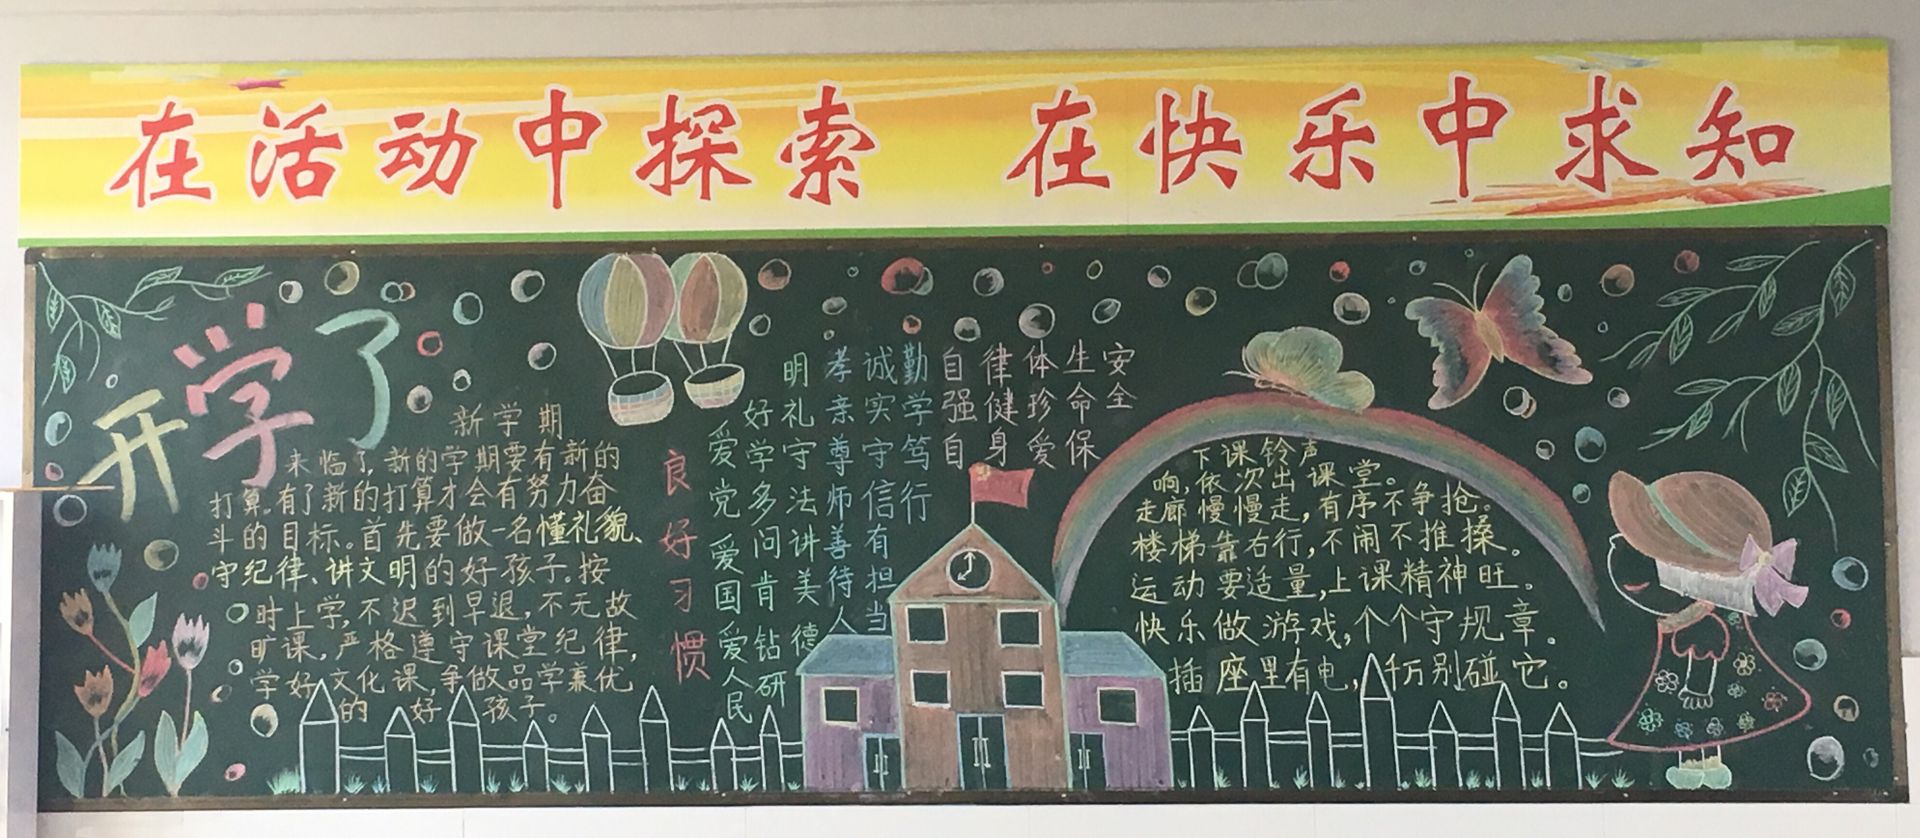 在活动中探索 在快乐中求知
开学了
新学期
来临了,新的学期要有新的
打算。有了新的打算才会有努力奋
斗的目标。首先要做一名懂礼貌、
守纪律、讲文明的好孩子。按
时上学,不迟到早退,不无故
旷课,严格遵守课堂纪律,
学好文化课,争做品学兼优
的好孩子。
良好习惯
爱党爱国爱人民
好学多问肯钻研
明礼守法讲美德
孝亲尊师善待人
诚实守信有担当
勤学笃行
自强自
律健身
体珍爱
生命保
安全
下课铃声
响,依次出课堂。
走廊慢慢走,有序不争抢。
楼梯靠右行,不闹不推搡。
运动要适量,上课精神旺。
快乐做游戏,个个守规章。
插座里有电,千万别碰它。